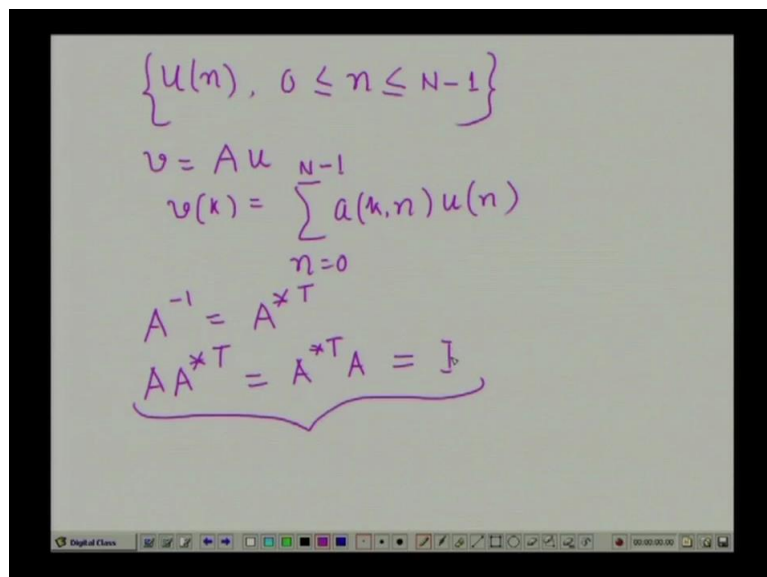 {u(n), 0 ≤ n ≤ N-1}
v = A u
v(k) = ∑_{n=0}^{N-1} a(k,n) u(n)
A^{-1} = A^{*T}
A A^{*T} = A^{*T} A = I
Digital Class
00:00:00.00